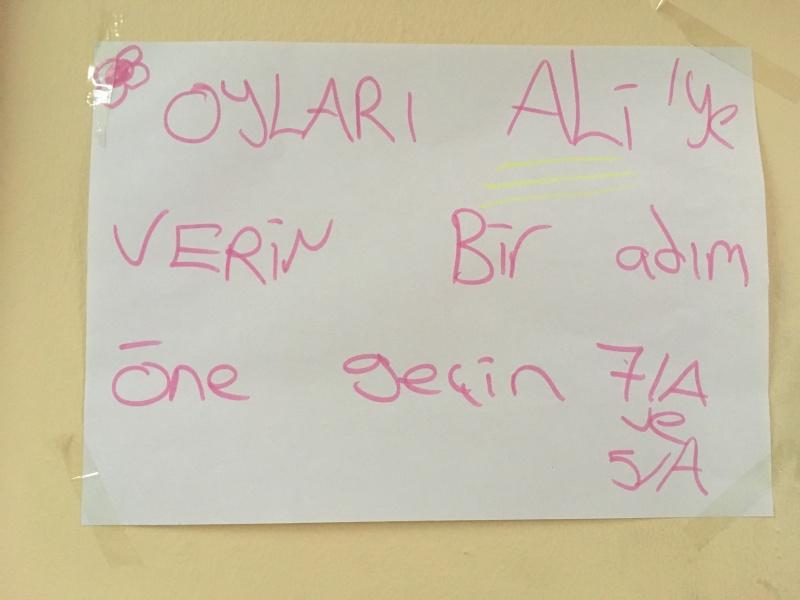 OYLARI ALİ'ye
VERİN Bir adım
öne geçin 7/A
ve
5/A